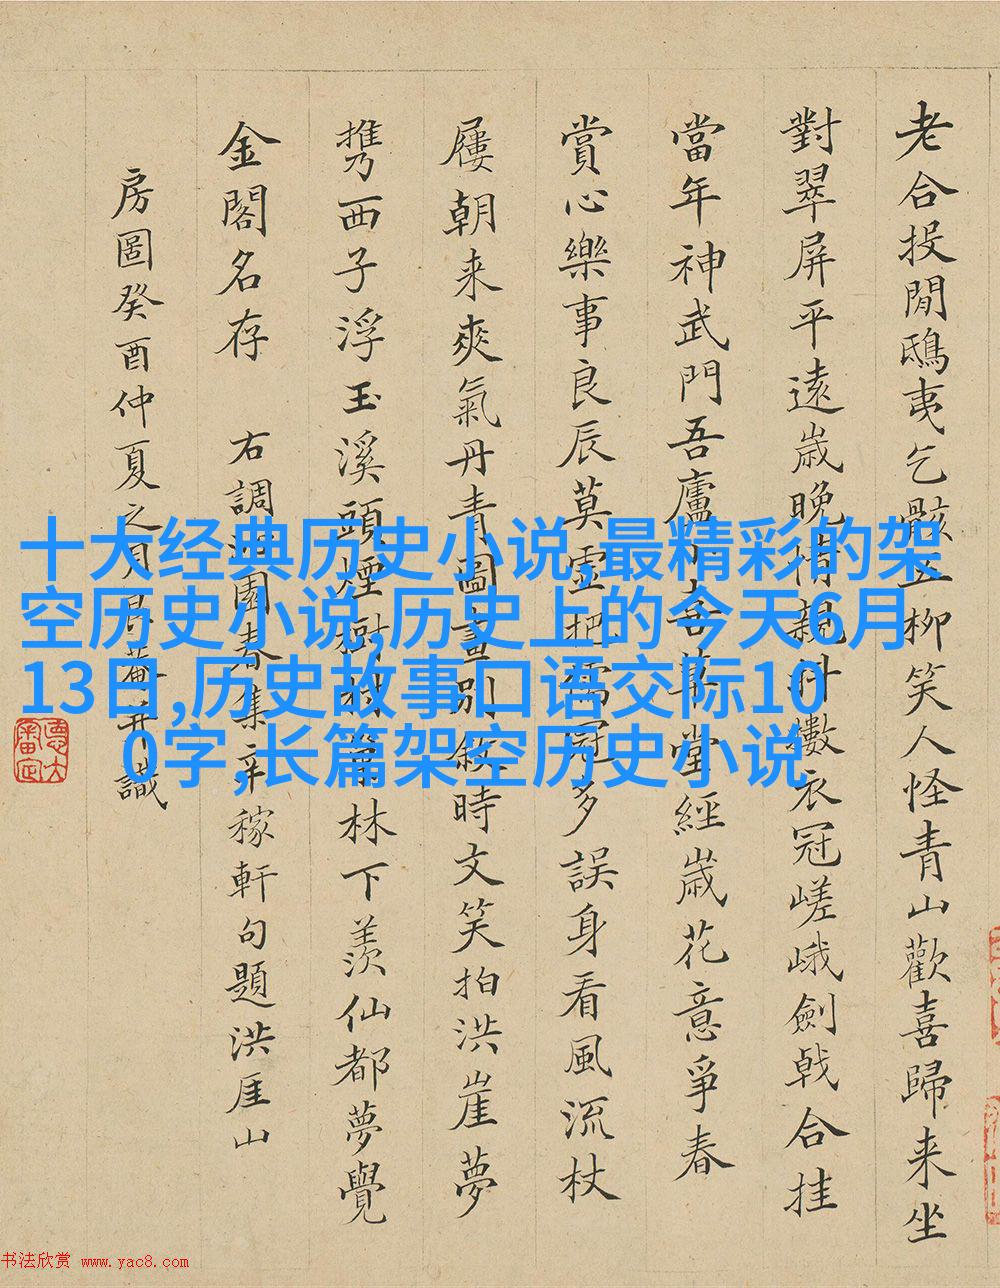 老合投閒鴟夷乞骸五柳笑人怪青山歡喜歸来坐
對翠屏平遠歲晚情親衣冠嵯峨劍戟合挂
當年神武門吾廬小喜草堂經歲花意爭春
賞心樂事良辰莫虛把儒冠多誤身看風流杖
屨朝来爽氣丹青圖畫別敘時文笑拍洪崖夢
携西子浮玉溪頭煙樹村林下羨仙都夢覺
金閣名存 右調沁園春集辛稼軒句題洪厓山
房圖癸酉仲夏之月艮菴并識
十大经典历史小说,最精彩的架
空历史小说,历史上的今天6月
13日,历史故事口语交际10
0字,长篇架空历史小说
书法欣赏 www.yac8.com